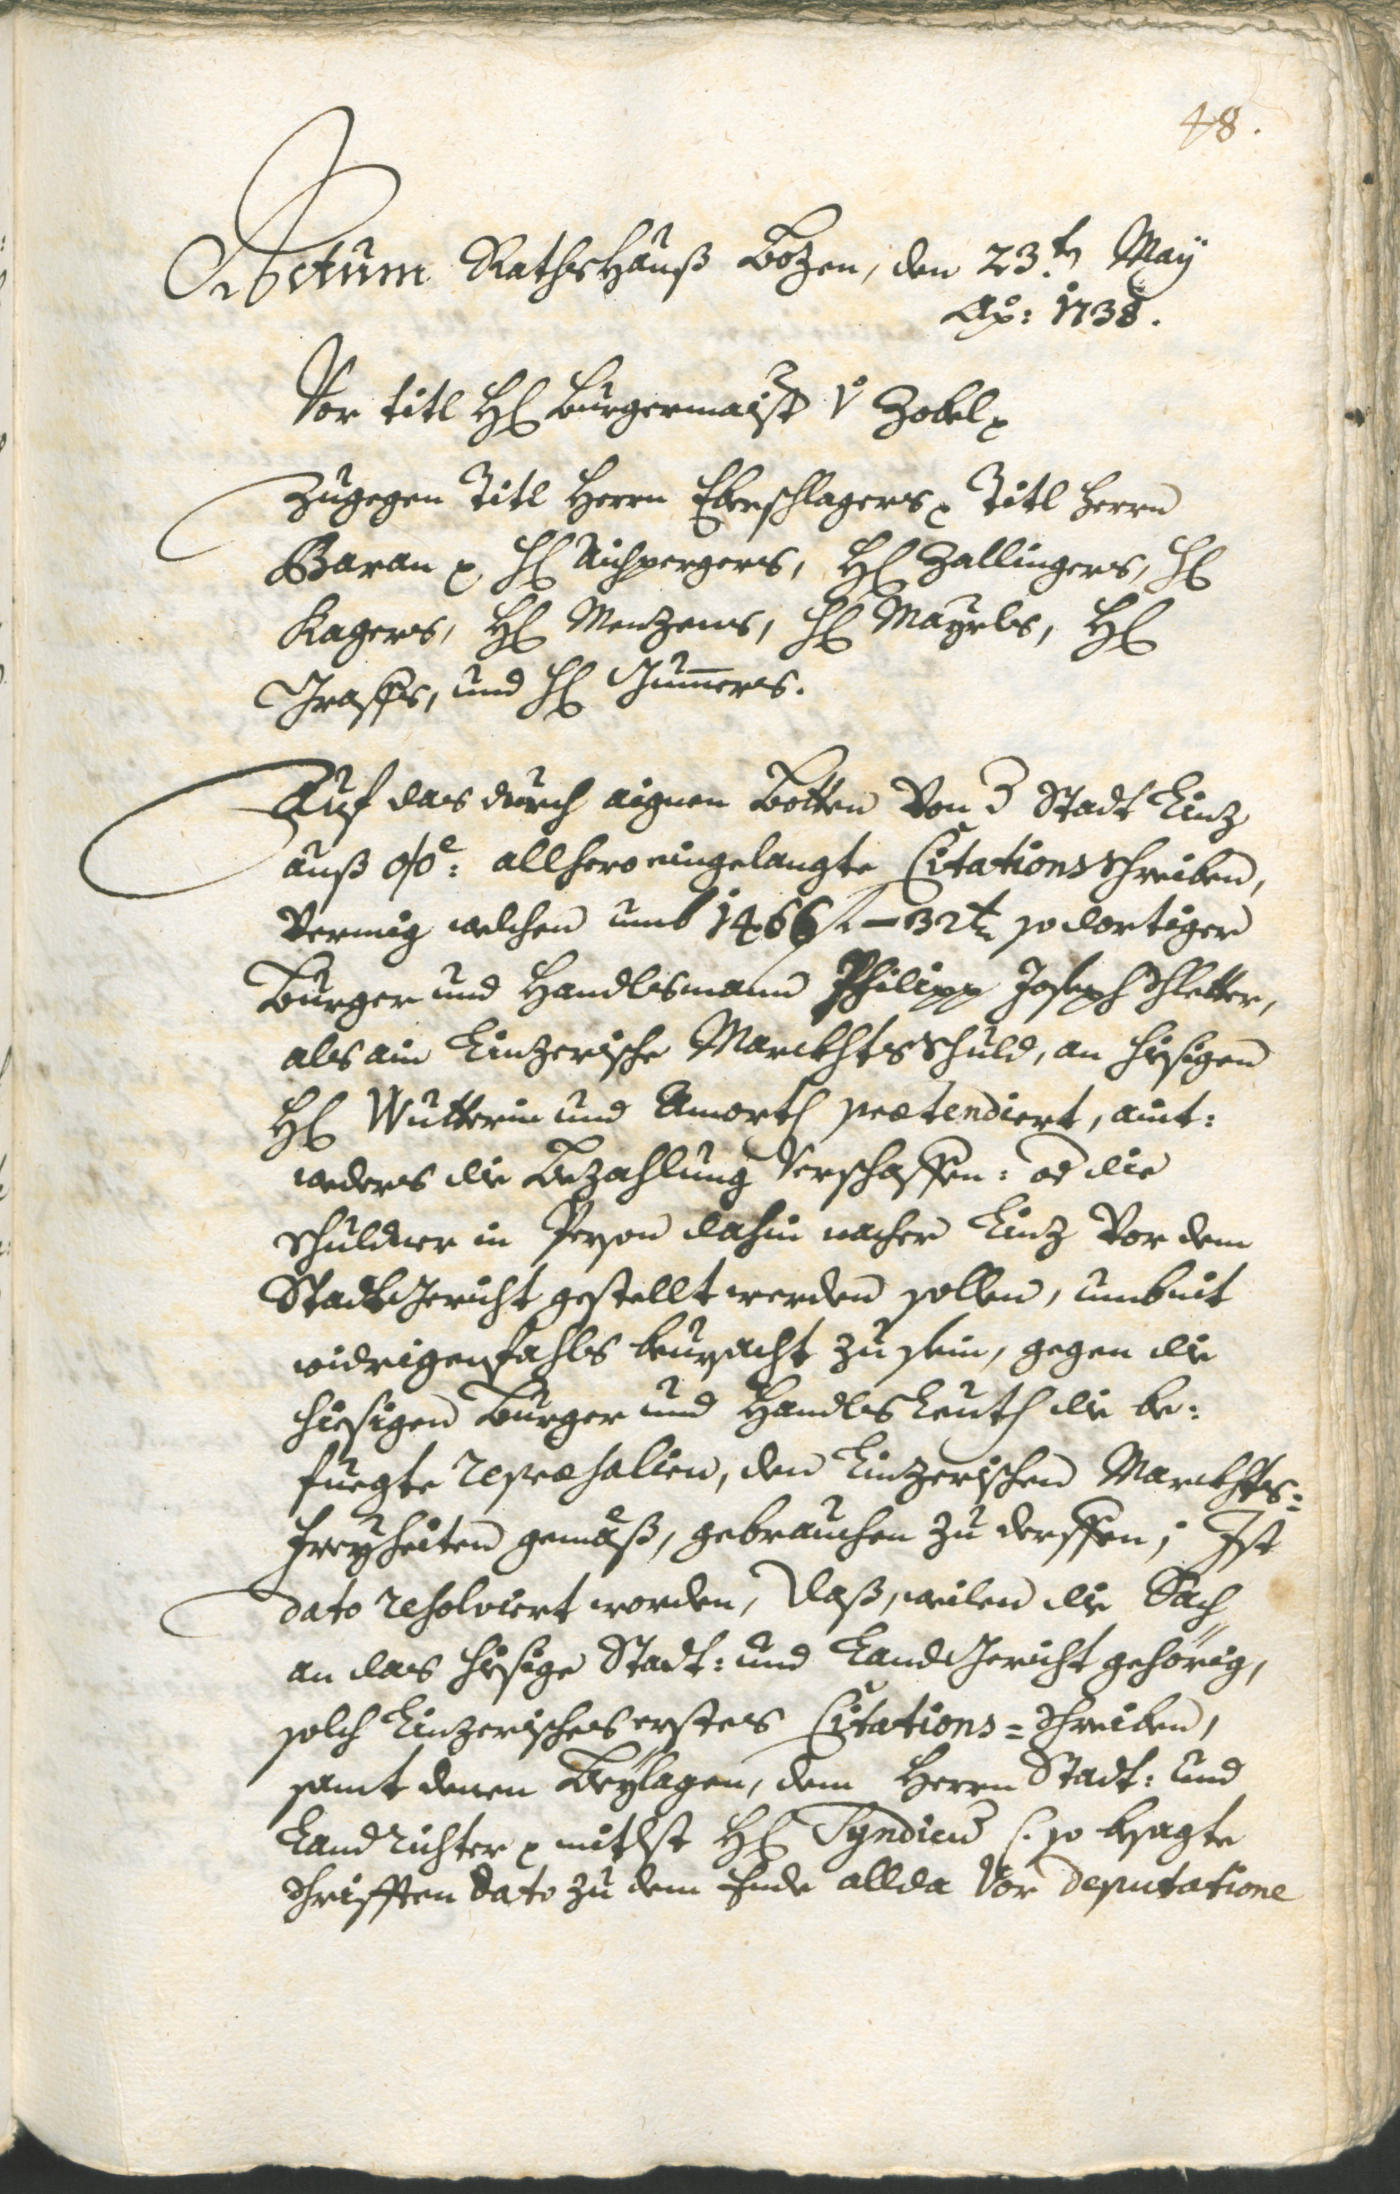 48.
Actum Rathshauß Bozen, den 23.tn May
Ao: 1738.
Vor titl H Burgermaistr v Zobel
Zugegen Titl Herrn Eberschlagers Titl Herrn
Baran H Aichpergers, H Zallingers, H
Kagers, H Menzens, H Mayrls, H
Graffs, und H Gumers.
Auf das durch aignen Botten von d Stadt Linz
auß allhero eingelangte Citationsschreiben,
Vermig welchen umb 1466 f - 32 so dortiger
Burger und Handlsmann Philipp Joseph Schletter,
als ain Linzerische Marckhtsschuld, an hiesigen
H Wutterin und Amorth praetendiert, aint:
weders die Bezahlung verschaffen: od die
Schuldner in Person dahin nacher Linz vor dem
StadtGericht gestellt werden sollen, umb nit
widrigenfahls beursacht zu sein, gegen die
hiesigen Burger und HandlsLeuth die be:
fuegte represalien, den Linzerischen Marckhts=
freyheiten gemäß, gebrauchen zu derffen; Ist
dato resolviert worden, daß, weilen die Sach
an das hiesige Stadt: und LandGericht gehörig,
solch Linzerisches erstes Citations=Schreiben,
samt denen Beylagen, dem Herrn Stadt: und
LandRichter mitlst H Syndicus (: so besagte
Schrifften dato zu dem Ende allda vor deputatione